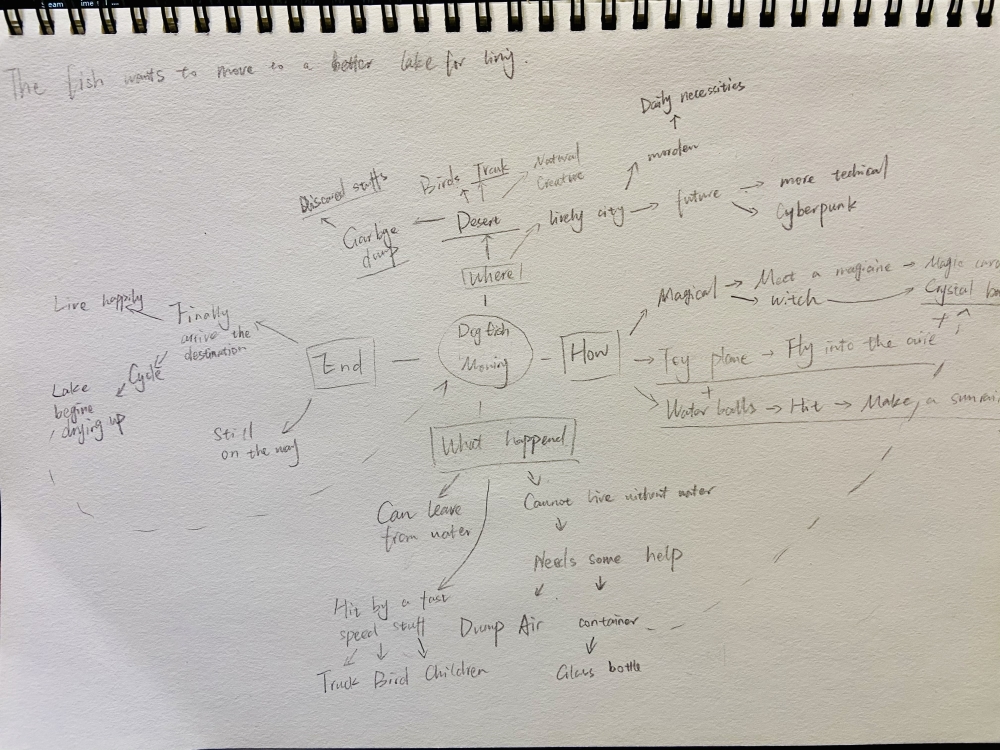 The fish wants to move to a better lake for living.
Daily necessities
morden
Birds
Trcuk
Natural
Creative
Discared stuffs
Garbge
dump
Desert
lively city
future
more techical
Cyberpunk
Where
Magical
Meet a magicine
Magic
witch
Crystal
Live happily
Finally
arrive the
destination
Cycle
Lake
begine
drying up
Still
on the way
End
Dog fish
Moving
How
Toy plane
Fly into the
+
Water balls
Hit
Make a
What happend
Can leave
from water
Cannot live without water
Needs some help
Dump Air
container
Glass bottle
Hit by a fast
speed stuff
Truck
Bird
Children